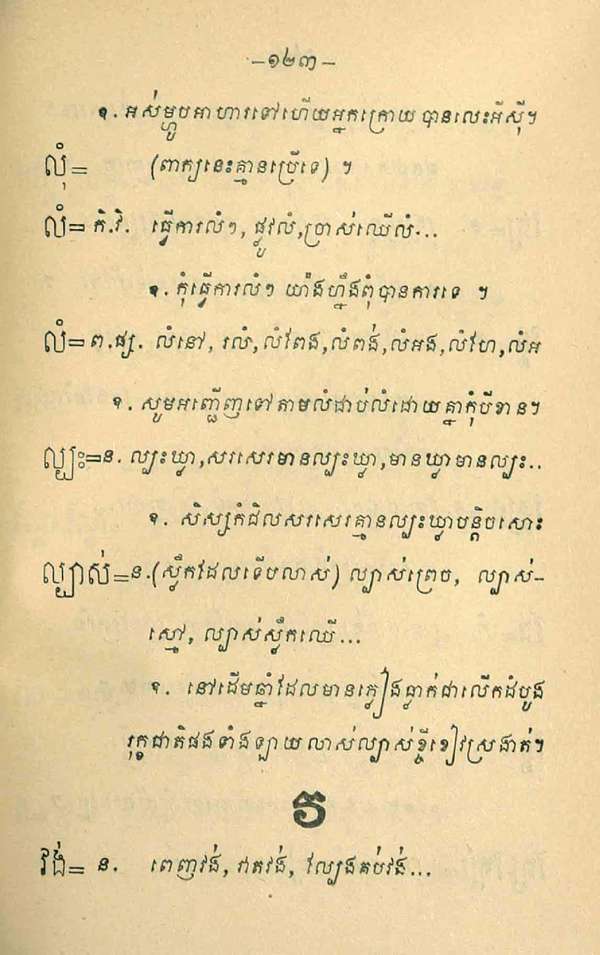 –១២៣–
ឧ. អស់ម្ហូបអាហារទៅហើយអ្នកក្រោយបានលេះអីស៊ី។
លុំ= (ពាក្យនេះគ្មានប្រើទេ) ។
លំ= កិ.វិ. ធ្វើការលំៗ, ផ្លូវលំ, ច្រាស់ឈើលំ...
ឧ. កុំធ្វើការលំៗ យ៉ាងហ្នឹងពុំបានការទេ ។
លំ= ព.ផ្ស. លំនៅ, រលំ, លំពែង, លំពង់, លំអង, លំហែ, លំអ
ឧ. សូមអញ្ជើញទៅតាមលំដាប់លំដោយគ្នាកុំបីខាន។
ល្បះ=ន. ល្បះឃ្លា, សរសេរមានល្បះឃ្លា, មានឃ្លាមានល្បះ..
ឧ. សិស្សកំជិលសរសេរគ្មានល្បះឃ្លាបន្តិចសោះ
ល្បាស់=ន. (ស្លឹកដែលទើបលាស់) ល្បាស់ព្រេច, ល្បាស់-
ស្មៅ, ល្បាស់ស្លឹកឈើ...
ឧ. នៅដើមឆ្នាំដែលមានភ្លៀងធ្លាក់ជាលើកដំបូង
រុក្ខជាតិផងទាំងឡាយលាស់ល្បាស់ខ្ចីខៀវស្រងាត់។
វ
វង់= ន. ពេញវង់, រាតវង់, ល្បែងគប់វង់...